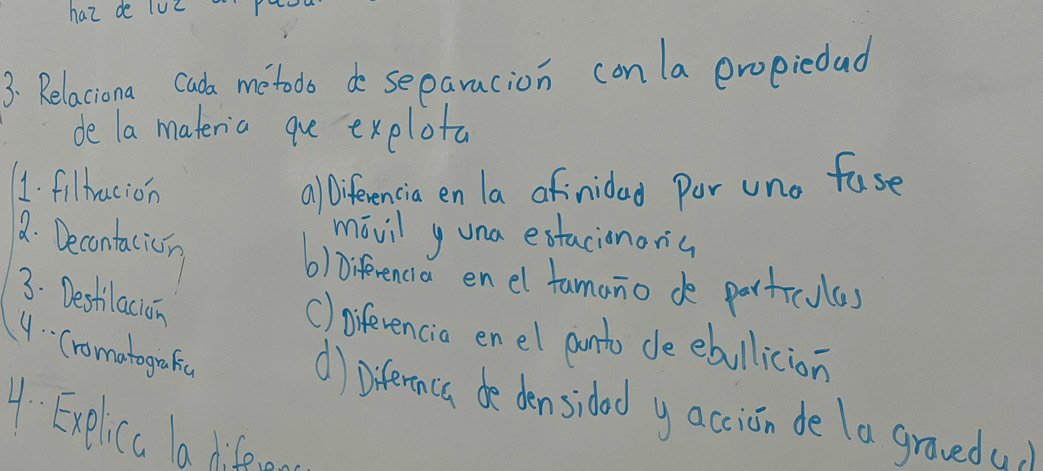 haz de luz
3. Relaciona cada método de separación con la propiedad
de la materia que explota
1. filtración
2. Decantación
3. Destilación
4.. Cromatografía
a) Diferencia en la afinidad por una fase
móvil y una estacionaria
b) Diferencia en el tamaño de partículas
c) Diferencia en el punto de ebullición
d) Diferencia de densidad y acción de la gravedad
4.. Explica la diferenc